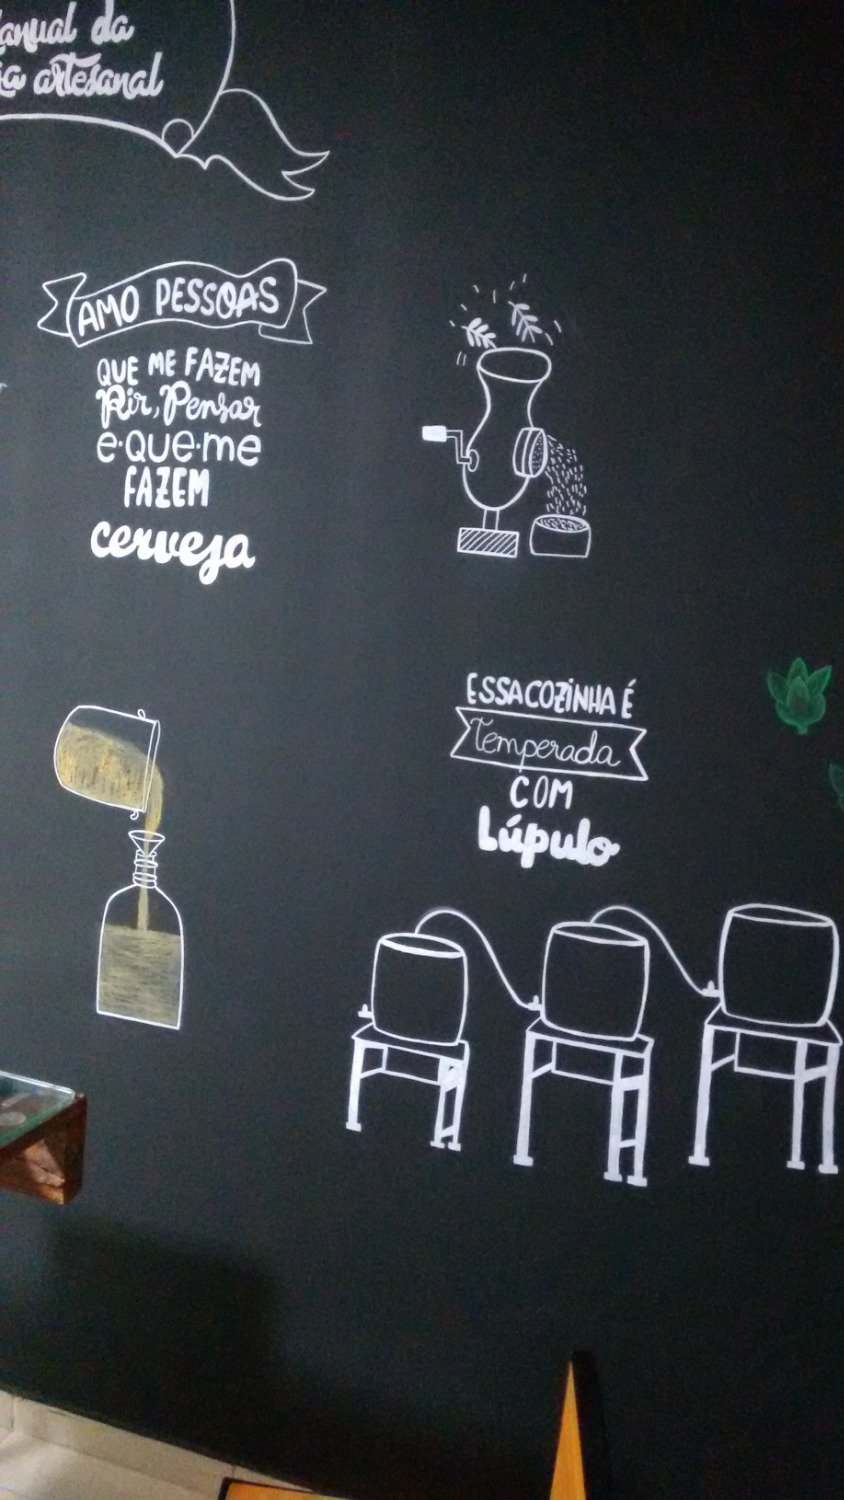 da
artesanal
AMO PESSOAS
QUE ME FAZEM
Rir, Pensar
e·que·me
FAZEM
cerveja
ESSA COZINHA É
Temperada
COM
Lúpulo